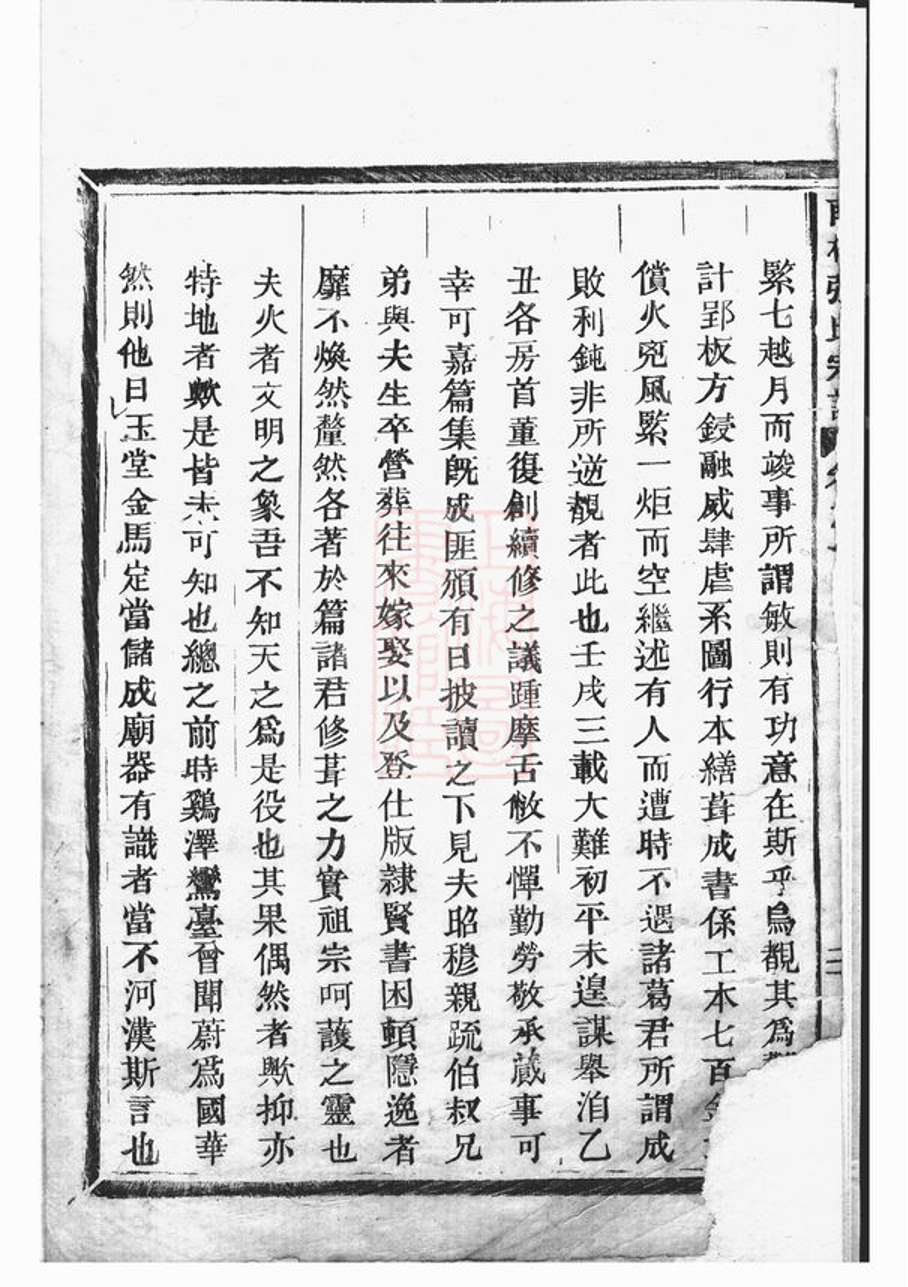 張氏宗譜
緊七越月而竣事所謂敏則有功意在斯乎烏覩其爲
計郢板方鋟融威肆虐系圖行本繕葺成書係工本七百
償火兕風緊一炬而空繼述有人而遭時不遇諸葛君所謂成
敗利鈍非所逆覩者此也壬戌三載大難初平未遑謀舉洎乙
丑各房首董復創續修之議踵摩舌敝不憚勤勞敬承蕆事可
幸可嘉篇集旣成匪頒有日披讀之下見夫昭穆親疏伯叔兄
弟與夫生卒營葬往來嫁娶以及登仕版隷賢書困頓隱逸者
靡不煥然釐然各著於篇諸君修葺之力實祖宗呵護之靈也
夫火者文明之象吾不知天之爲是役也其果偶然者歟抑亦
特地者歟是皆未可知也總之前時鷄澤鸞臺曾聞蔚爲國華
然則他日玉堂金馬定當儲成廟器有識者當不河漢斯言也